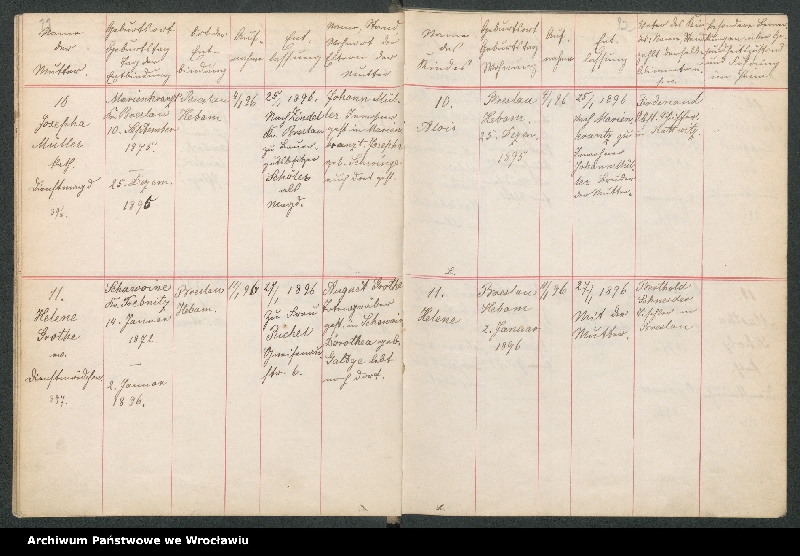 Name
der
Mutter.
Geburtsort
Geburtstag
Tag der
Entbindung
Ort der
Ent-
bindung
Auf-
nahme
Ent-
lassung
Name, Stand
Wohnort der
Eltern der
Mutter
10
Josepha
Müller
kath.
Dienstmagd
Marienkranst
Kr. Breslau
10. September
1875
25. Dezem.
1895
Breslau
Hebam.
4/1 96
25/1 1896.
Nach Zindel
Kr. Breslau
zu Bauer-
gutsbesitzer
Scholz
als
Magd.
Johann Mül-
ler Inwohner
gest. in Marien-
kranst. Josepha
geb.
auch dort gest.
11.
Helene
Grothe
ev.
Dienstmädchen
397.
Schawoine
Kr. Trebnitz
14. Januar
1872
2. Januar
1896.
Breslau
Hebam.
11/1 96
27/1 1896
Zu Frau
Puchet
str. 6.
August Grothe
gest. in Schawoine
Dorothea geb.
lebt
noch dort.
Name
des
Kindes
Geburtsort
Geburtstag
Wohnung
Auf-
nahme
Ent-
lassung
Vater des Kin-
des, Name, Stand
10.
Alois
Breslau
Hebam.
25. Dezem.
1895
4/1 96
25/1 1896
Nach Marien-
kranst zu
Inwohner
Johann Mül-
ler Bruder
der Mutter.
Ferdinand
Schiffer
in Kottwitz
11.
Helene
Breslau
Hebam
2. Januar
1896
11/1 96
27/1 1896
Mit der
Mutter.
Berthold
Schneider
Schiffer in
Breslau
Archiwum Państwowe we Wrocławiu